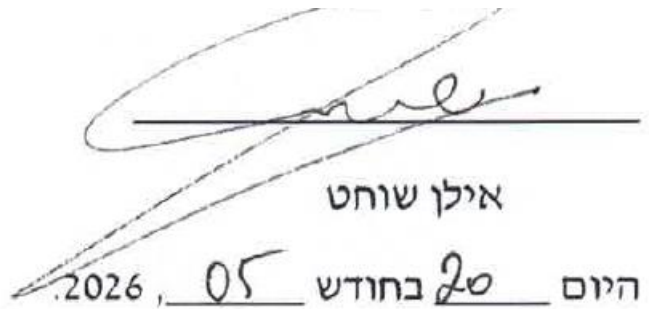 אילן שוחט
היום 20 בחודש 05, 2026.